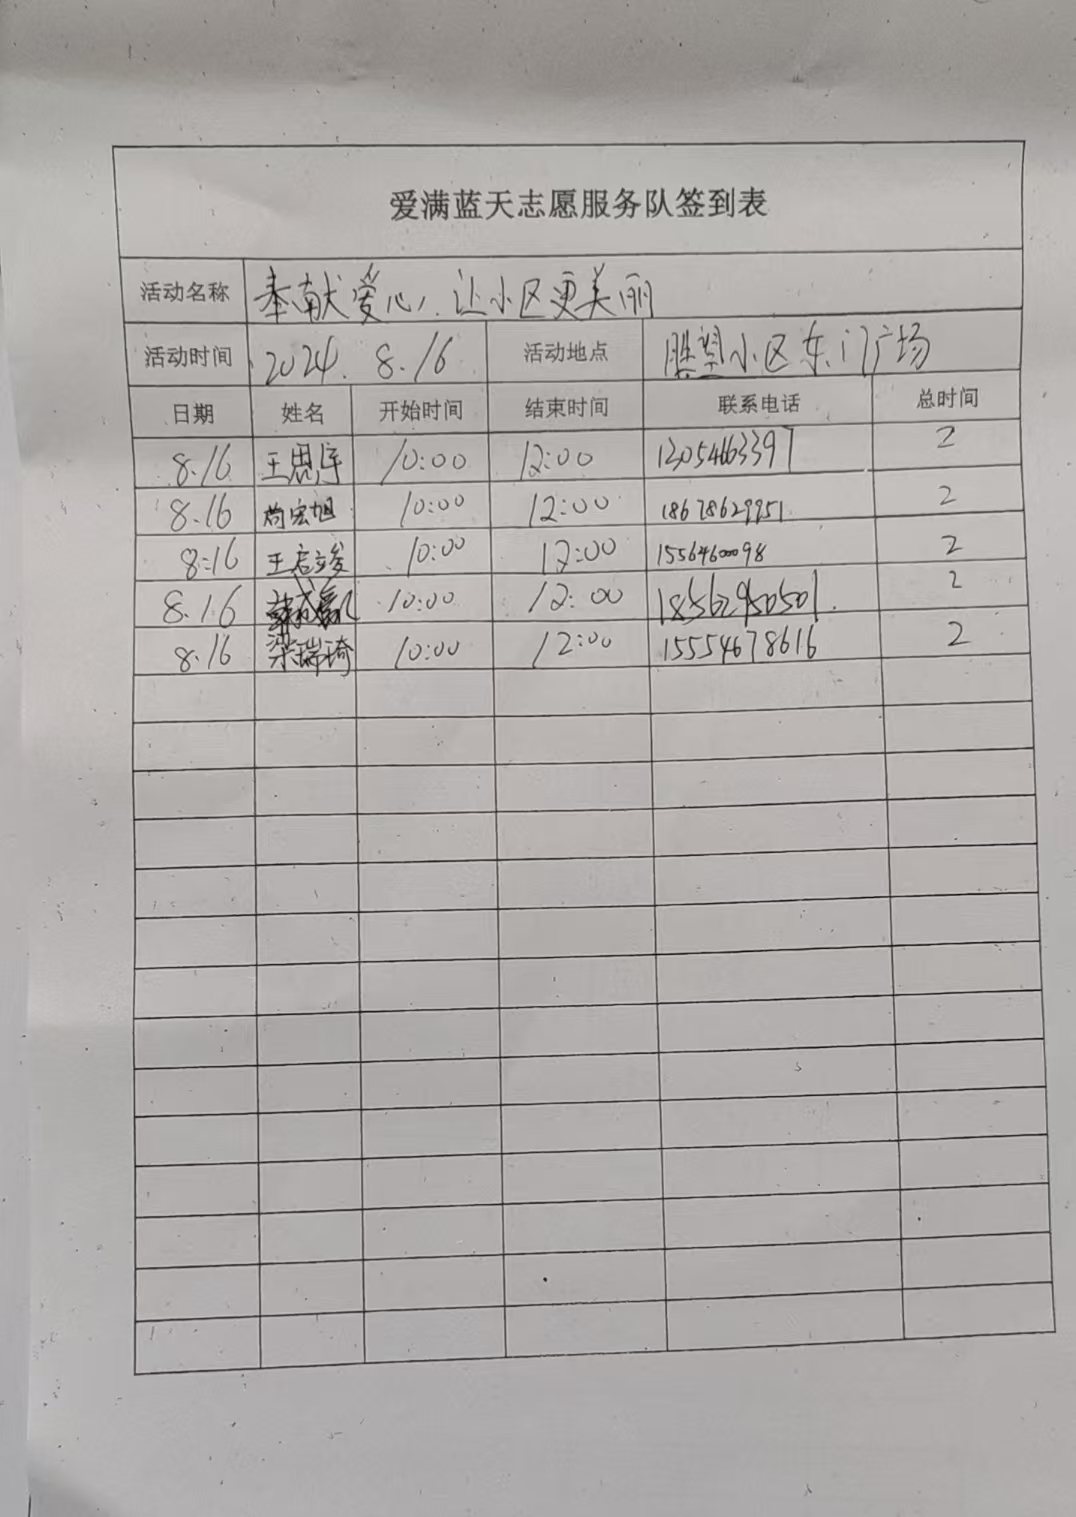 爱满蓝天志愿服务队签到表
活动名称 奉献爱心,让小区更美丽
活动时间 2024.8.16 活动地点 胜塑小区东门广场
日期 姓名 开始时间 结束时间 联系电话 总时间
8.16 王思 10:00 12:00 2
8.16 尚宏旭 10:00 12:00 18678629951 2
8:16 王启 10:00 12:00 15564600098 2
8.16 10:00 12:00 18562950501. 2
8.16 梁瑞琦 10:00 12:00 15554678616 2